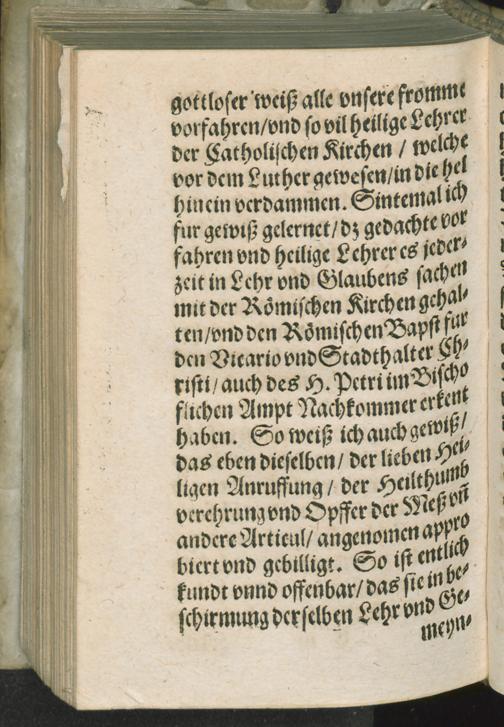 gottloser weiß alle vnsere fromme
vorfahren/vnd so vil heilige Lehrer
der Catholischen Kirchen / welche
vor dem Luther gewesen/in die hel
hinein verdammen. Sintemal ich
fur gewiß gelernet/dz gedachte vor
fahren vnd heilige Lehrer es jeder⸗
zeit in Lehr vnd Glaubens sachen
mit der Römischen Kirchen gehal⸗
ten/vnd den Römischen Bapst fur
den Vicario vnd Stadthalter Ch⸗
risti/auch des H. Petri im Bischo
flichen Ampt Nachkommer erkent
haben. So weiß ich auch gewiß/
das eben dieselben/ der lieben Hei⸗
ligen Anruffung / der Heilthumb
verehrung vnd Opffer der Meß vñ
andere Articul/ angenomen appro
biert vnd gebilligt. So ist entlich
kundt vnnd offenbar/das sie in be⸗
schirmung derselben Lehr vnd Ge⸗
meyn⸗